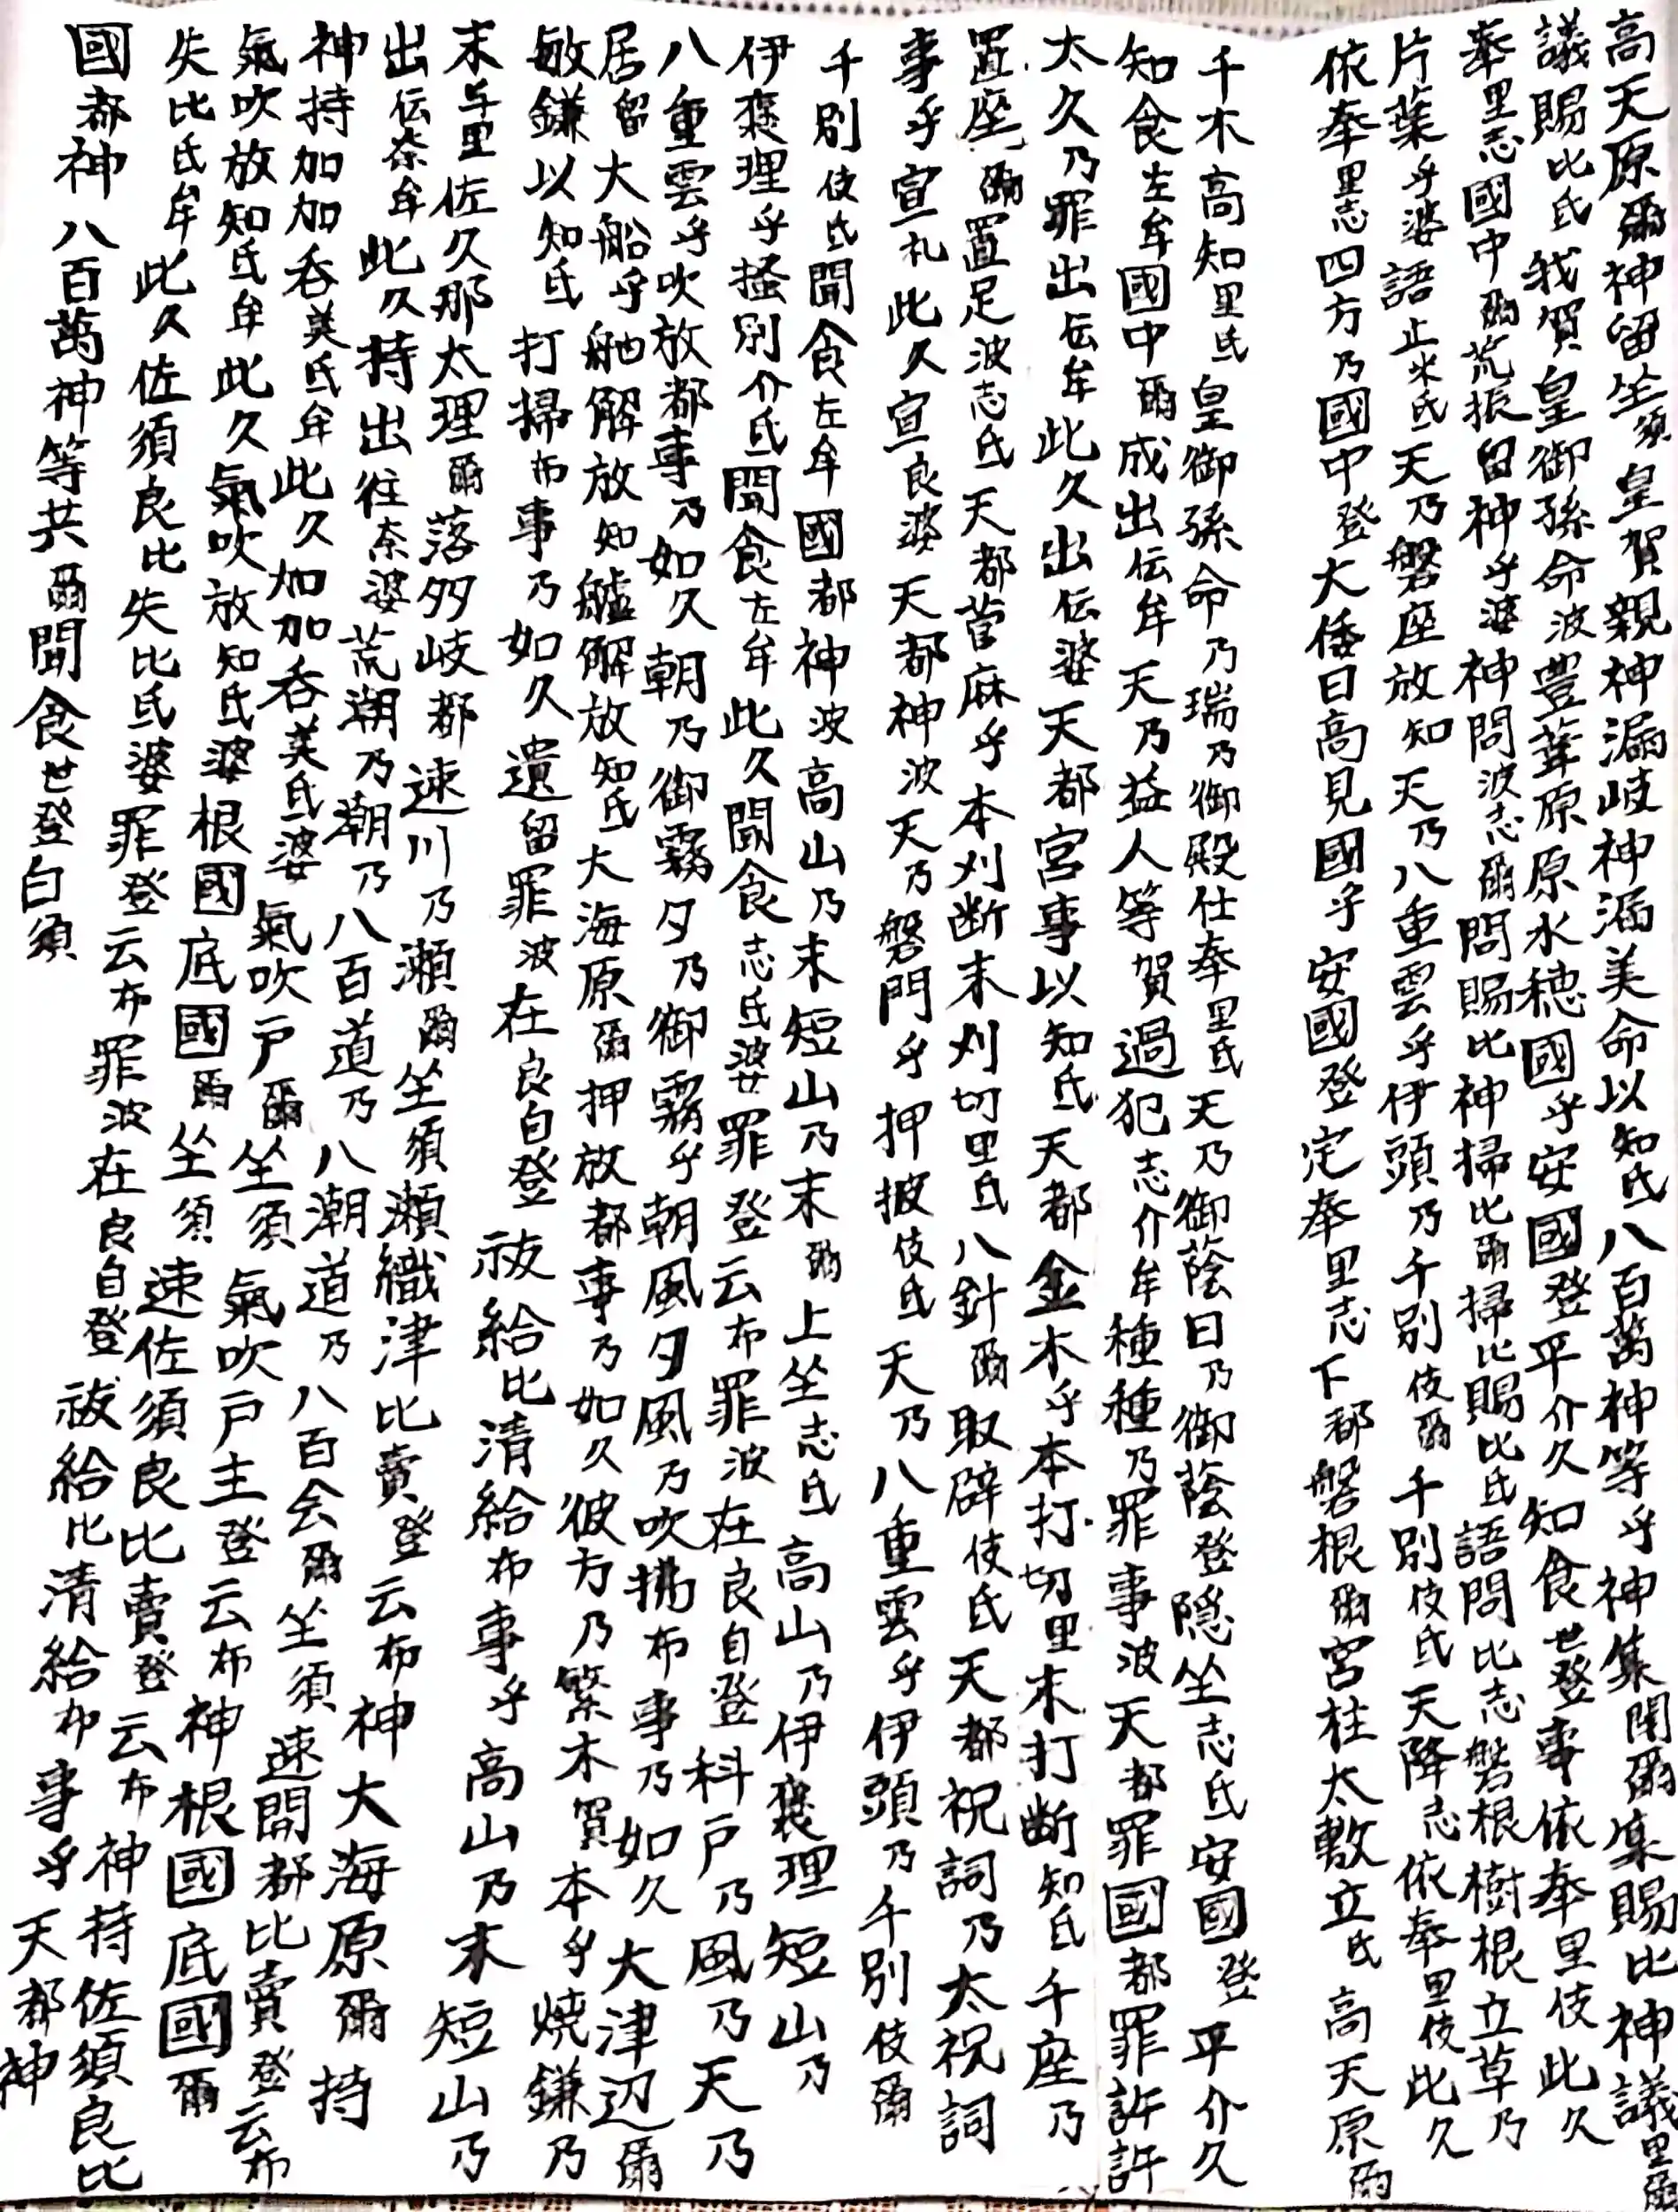 高天原爾神留坐須皇賀親神漏岐神漏美命以知氐八百萬神等乎神集閉爾集賜比神議里爾
議賜比氐我賀皇御孫命波豊葦原原水穂國乎安國登平介久知食世登事依奉里伎此久
奉里志國中爾荒振留神乎婆神問波志爾問賜比神掃比爾掃比賜比氐語問比志磐根樹根立草乃
片葉乎婆語止米氐天乃磐座放知天乃八重雲乎伊頭乃千別伎爾千別伎氐天降志依奉里伎此久
依奉里志四方乃國中登大倭日高見國乎安國登定奉里志下都磐根爾宮柱太敷立氐高天原爾
千木高知里氐皇御孫命乃瑞乃御殿仕奉里氐天乃御蔭日乃御蔭登隠坐志氐安國登平介久
知食左牟國中爾成出伝牟天乃益人等賀過犯志介牟種種乃罪事波天都罪國都罪許許
太久乃罪出伝牟此久出伝婆天都宮事以知氐天都金木乎本打切里末打断知氐千座乃
置座爾置足波志氐天都菅麻乎本刈断末刈切里氐八針爾取辟伎氐天都祝詞乃太祝詞
事乎宣礼此久宣良婆天都神波天乃磐門乎押披伎氐天乃八重雲乎伊頭乃千別伎爾
千別伎氐聞食左牟國都神波高山乃末短山乃末爾上坐志氐高山乃伊褒理短山乃
伊褒理乎掻別介氐聞食左牟此久聞食志氐婆罪登云布罪波在良自登科戸乃風乃天乃
八重雲乎吹放都事乃如久朝乃御霧夕乃御霧乎朝風夕風乃吹拂布事乃如久大津辺爾
居留大船乎舳解放知艫解放知氐大海原爾押放都事乃如久彼方乃繁木賀本乎焼鎌乃
敏鎌以知氐打掃布事乃如久遺留罪波在良自登祓給比清給布事乎高山乃末短山乃
末与里佐久那太理爾落多岐都速川乃瀬爾坐須瀬織津比賣登云布神大海原爾持
出伝奈牟此久持出往奈婆荒潮乃潮乃八百道乃八潮道乃八百会爾坐須速開都比賣登云布
神持加加呑美氐牟此久加加呑美氐婆氣吹戸爾坐須氣吹戸主登云布神根國底國爾
氣吹放知氐牟此久氣吹放知氐婆根國底國爾坐須速佐須良比賣登云布神持佐須良比
失比氐牟此久佐須良比失比氐婆罪登云布罪波在良自登祓給比清給布事乎天都神
國都神八百萬神等共爾聞食世登白須